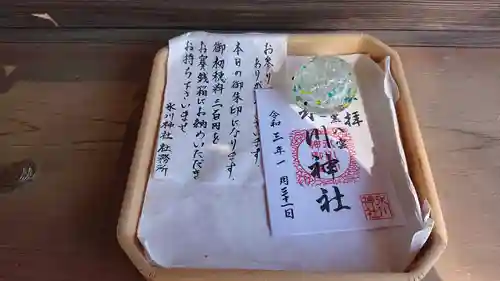 お参り
あり
います
本日の御朱印になります
御初穂料三百円を
お賽銭箱にお納めいただき
お持ち下さいませ
氷川神社 社務所
拝
川神社
令和三年一月三十一日
氷川
神社